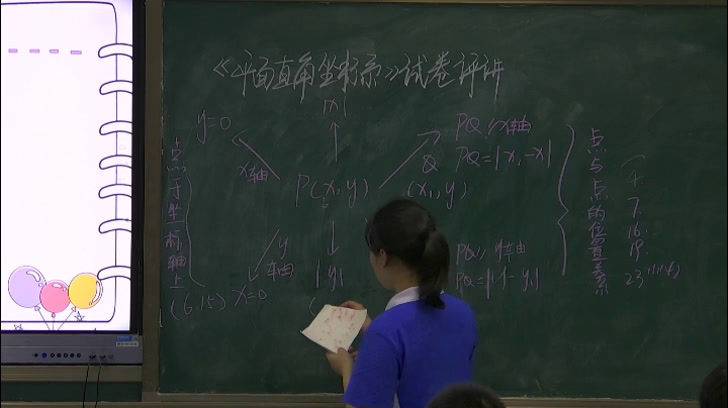 《平面直角坐标系》试卷评讲
|x|
y=0
x轴
P(x,y)
Q
(x₁,y)
PQ//x轴
PQ=|x₁-x|
y
轴
x=0
|y|
PQ//y轴
点于坐标轴上
(6.15)
点与点的位置关系
7.
16.
19.
23